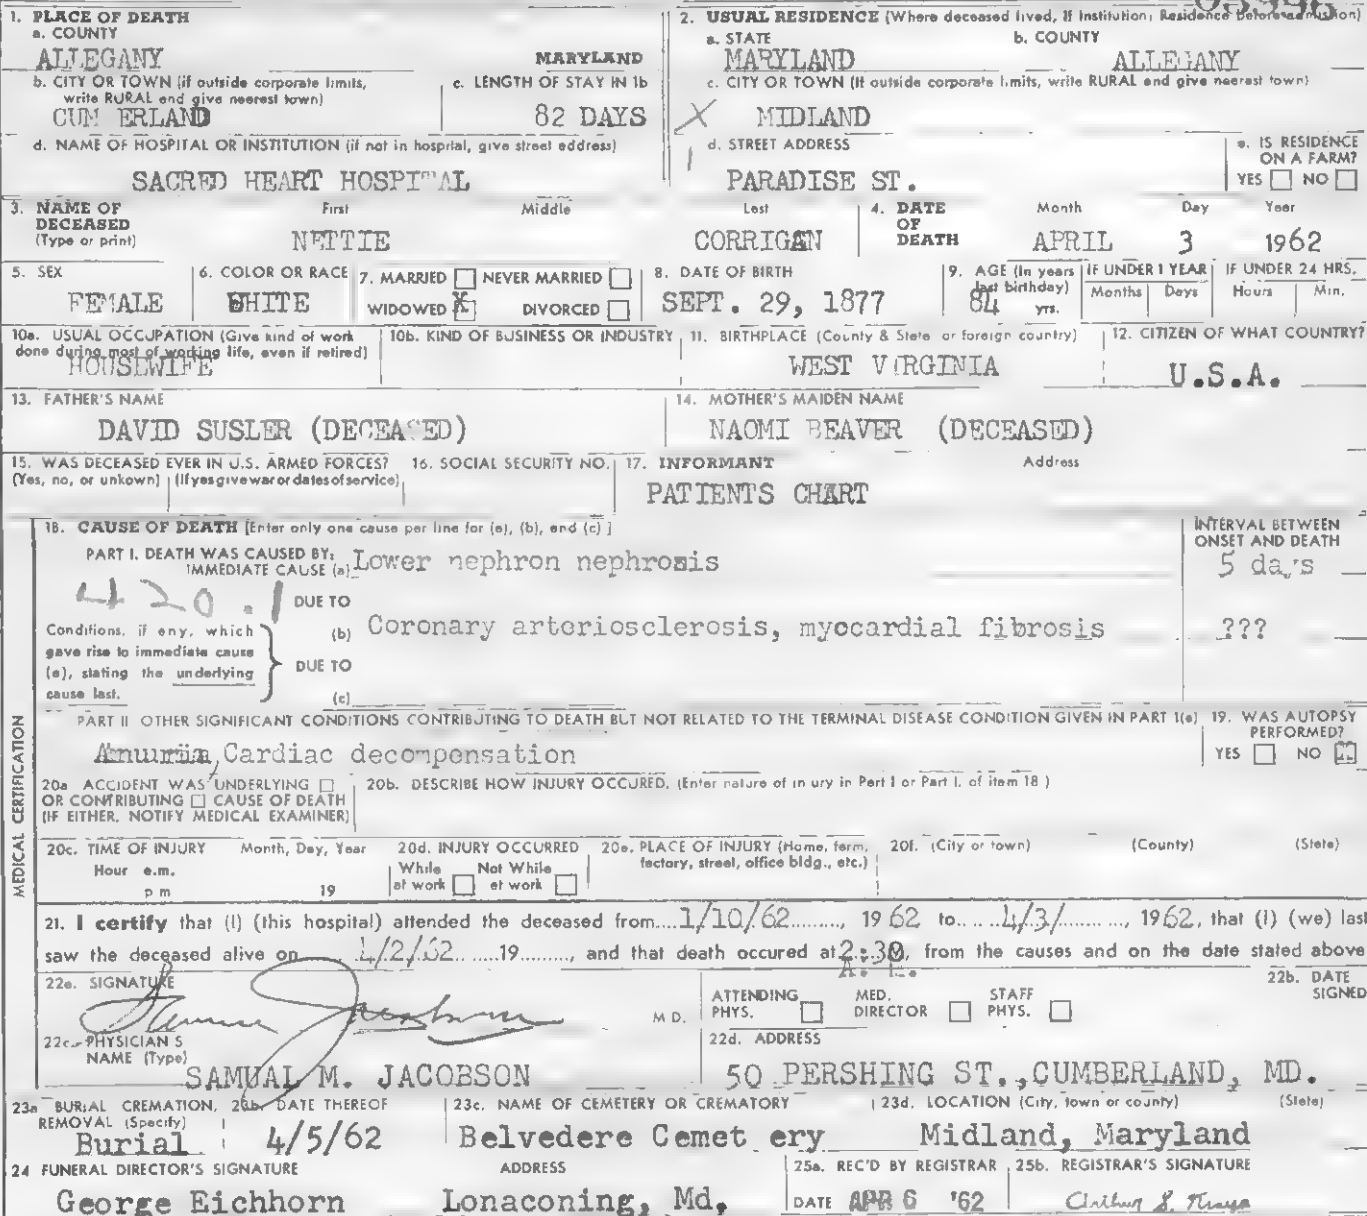 1. PLACE OF DEATH
a. COUNTY
ALLEGANY MARYLAND
b. CITY OR TOWN (if outside corporate limits, write RURAL and give nearest town)
CUM ERLAND
c. LENGTH OF STAY IN 1b
82 DAYS
d. NAME OF HOSPITAL OR INSTITUTION (if not in hospital, give street address)
SACRED HEART HOSPITAL
2. USUAL RESIDENCE (Where deceased lived, If Institution: Residence before admission)
a. STATE
MARYLAND
b. COUNTY
ALLEGANY
c. CITY OR TOWN (If outside corporate limits, write RURAL and give nearest town)
X MIDLAND
d. STREET ADDRESS
PARADISE ST.
e. IS RESIDENCE ON A FARM?
YES NO
3. NAME OF DECEASED (Type or print)
First Middle Last
NETTIE CORRIGAN
4. DATE OF DEATH
Month Day Year
APRIL 3 1962
5. SEX
FEMALE
6. COLOR OR RACE
WHITE
7. MARRIED NEVER MARRIED
WIDOWED X DIVORCED
8. DATE OF BIRTH
SEPT. 29, 1877
9. AGE (In years last birthday)
84 yrs.
IF UNDER 1 YEAR
Months Days
IF UNDER 24 HRS.
Hours Min.
10a. USUAL OCCUPATION (Give kind of work done during most of working life, even if retired)
HOUSEWIFE
10b. KIND OF BUSINESS OR INDUSTRY
11. BIRTHPLACE (County & State or foreign country)
WEST VIRGINIA
12. CITIZEN OF WHAT COUNTRY?
U.S.A.
13. FATHER'S NAME
DAVID SUSLER (DECEASED)
14. MOTHER'S MAIDEN NAME
NAOMI BEAVER (DECEASED)
15. WAS DECEASED EVER IN U.S. ARMED FORCES?
(Yes, no, or unkown) (If yes give war or dates of service)
16. SOCIAL SECURITY NO.
17. INFORMANT Address
PATIENTS CHART
MEDICAL CERTIFICATION
18. CAUSE OF DEATH [Enter only one cause per line for (a), (b), and (c) ]
INTERVAL BETWEEN ONSET AND DEATH
PART I. DEATH WAS CAUSED BY:
IMMEDIATE CAUSE (a) Lower nephron nephrosis 5 days
420.1
DUE TO
(b) Coronary arteriosclerosis, myocardial fibrosis ???
Conditions, if any, which gave rise to immediate cause (a), stating the underlying cause last.
DUE TO
(c)
PART II OTHER SIGNIFICANT CONDITIONS CONTRIBUTING TO DEATH BUT NOT RELATED TO THE TERMINAL DISEASE CONDITION GIVEN IN PART I(a)
Anuria, Cardiac decompensation
19. WAS AUTOPSY PERFORMED?
YES NO X
20a ACCIDENT WAS UNDERLYING
OR CONTRIBUTING CAUSE OF DEATH
(IF EITHER, NOTIFY MEDICAL EXAMINER)
20b. DESCRIBE HOW INJURY OCCURED. (Enter nature of injury in Part I or Part I. of item 18 )
20c. TIME OF INJURY Month, Day, Year
Hour a.m.
p m 19
20d. INJURY OCCURRED
While at work Not While at work
20e. PLACE OF INJURY (Home, farm, factory, street, office bldg., etc.)
20f. (City or town) (County) (State)
21. I certify that (I) (this hospital) attended the deceased from 1/10/62, 1962 to 4/3/, 1962, that (I) (we) last
saw the deceased alive on 4/2/62 19, and that death occured at 2:30, from the causes and on the date stated above
22a. SIGNATURE
M D.
ATTENDING PHYS. MED. DIRECTOR STAFF PHYS.
22b. DATE SIGNED
22c. PHYSICIAN S NAME (Type)
SAMUAL M. JACOBSON
22d. ADDRESS
50 PERSHING ST., CUMBERLAND, MD.
23a BURIAL CREMATION, REMOVAL (Specify)
Burial
23b. DATE THEREOF
4/5/62
23c. NAME OF CEMETERY OR CREMATORY
Belvedere Cemet ery
23d. LOCATION (City, town or county) (State)
Midland, Maryland
24 FUNERAL DIRECTOR'S SIGNATURE ADDRESS
George Eichhorn Lonaconing, Md.
25a. REC'D BY REGISTRAR
DATE APR 6 '62
25b. REGISTRAR'S SIGNATURE